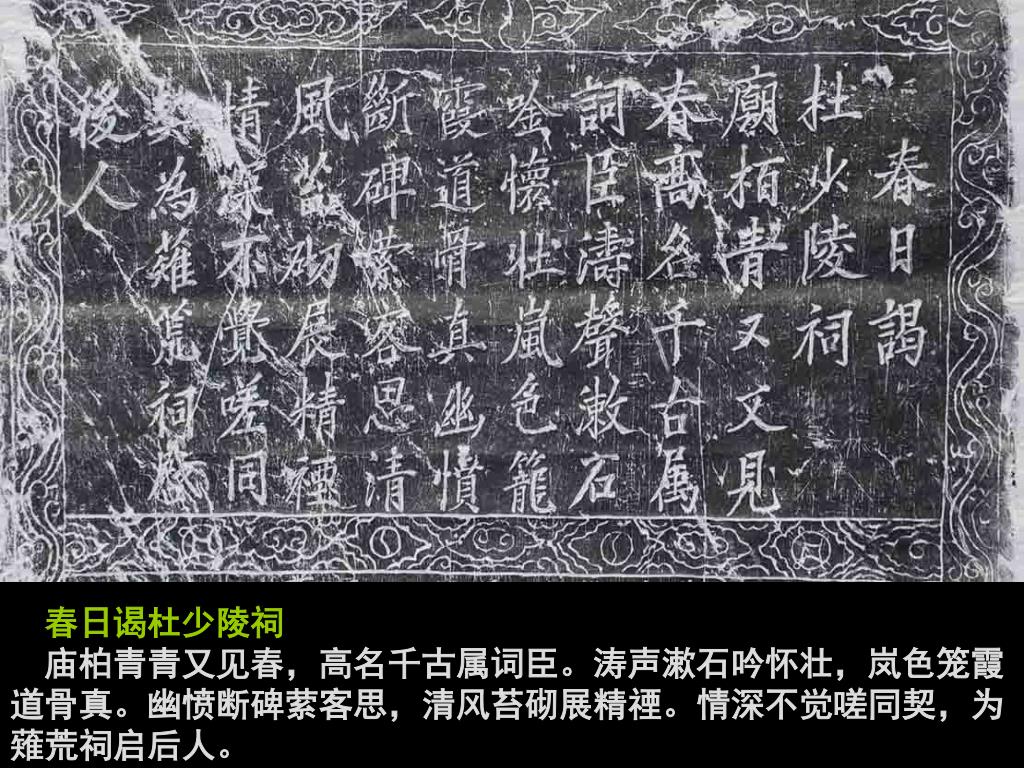 春日謁
杜少陵祠
廟栢青又又見
春髙名千古属
詞臣濤聲漱石
唫懷壯嵐色籠
霞道骨真幽憤
斷碑縈客思清
風苔砌展精禋
情深不覺嗟同
契為薙荒祠啓
後人
春日谒杜少陵祠
庙柏青青又见春，高名千古属词臣。涛声漱石吟怀壮，岚色笼霞
道骨真。幽愤断碑萦客思，清风苔砌展精禋。情深不觉嗟同契，为
薙荒祠启后人。